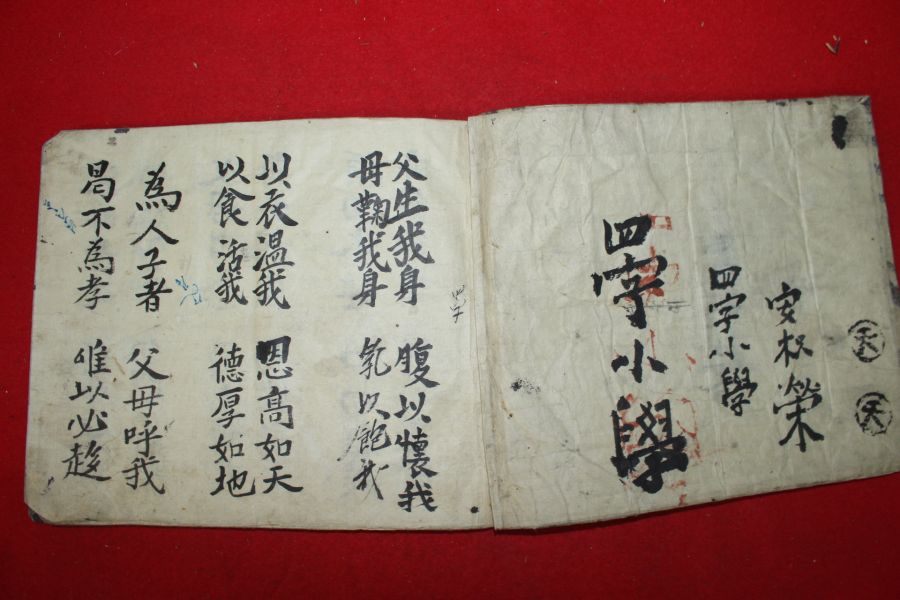 天
天
四字小學
四字小學
四字
父生我身 腹以懷我
母鞠我身 乳以飽我
以衣温我 恩高如天
以食活我 德厚如地
為人子者 父母呼我
曷不為孝 唯以必趍